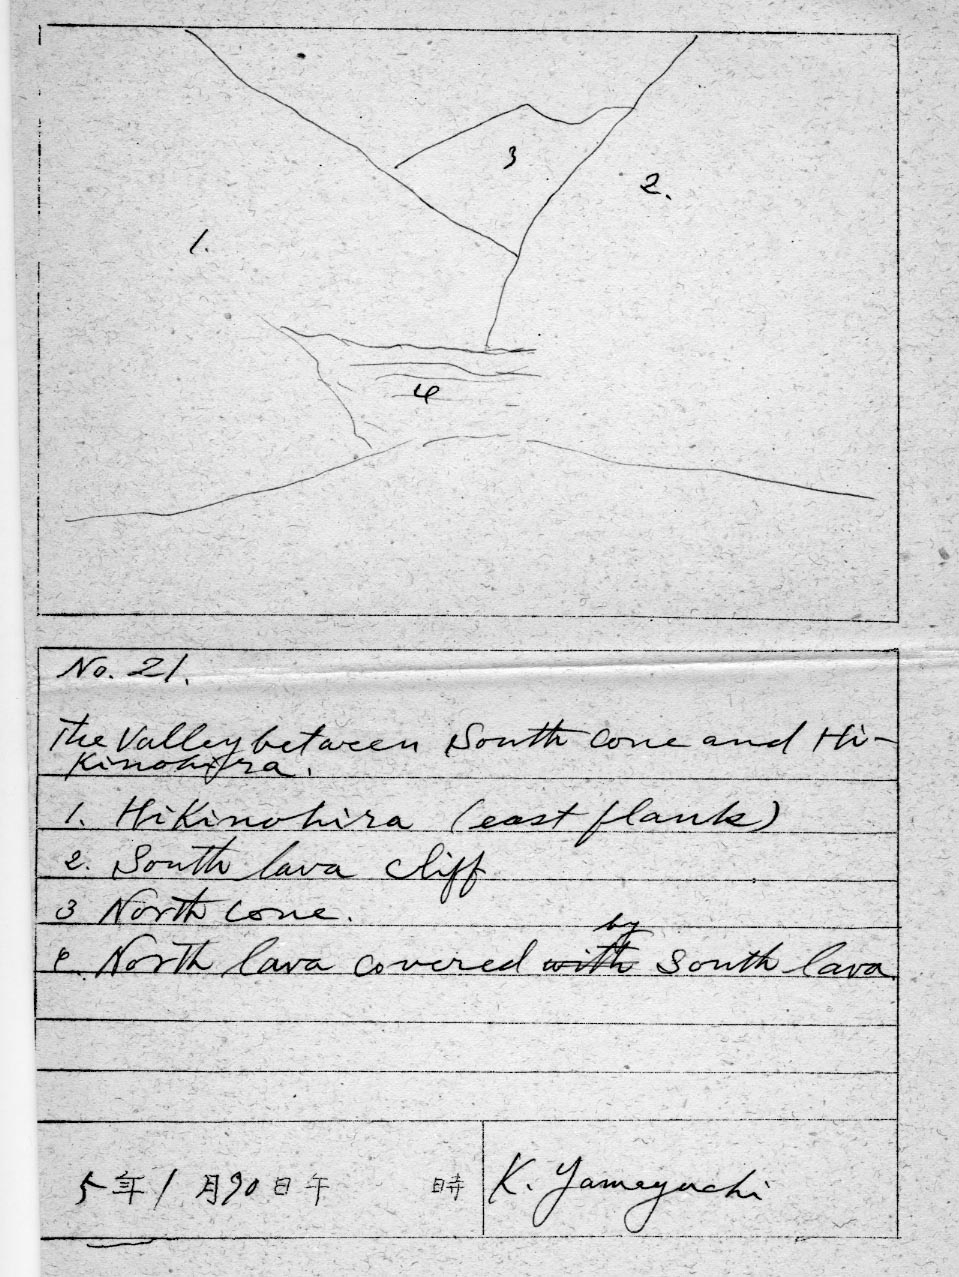 3
2.
1.
4
No. 21.
The Valley between South cone and Hi-
kinohira.
1. Hikinohira (east flank)
2. South lava cliff
3 North cone.
by
4. North lava covered with South lava
5年1月90日午 時
K. Yamaguchi